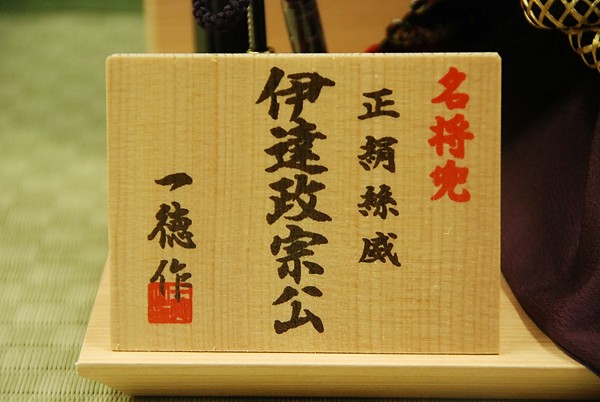 名将兜
正絹絲威
伊達政宗公
一徳作